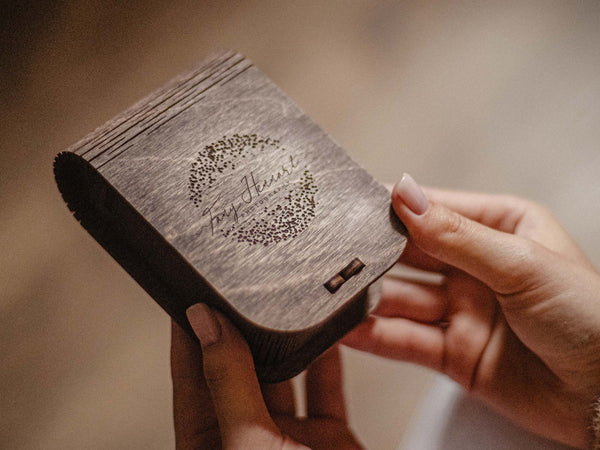 Tory Hewert
PHOTOGRAPHY